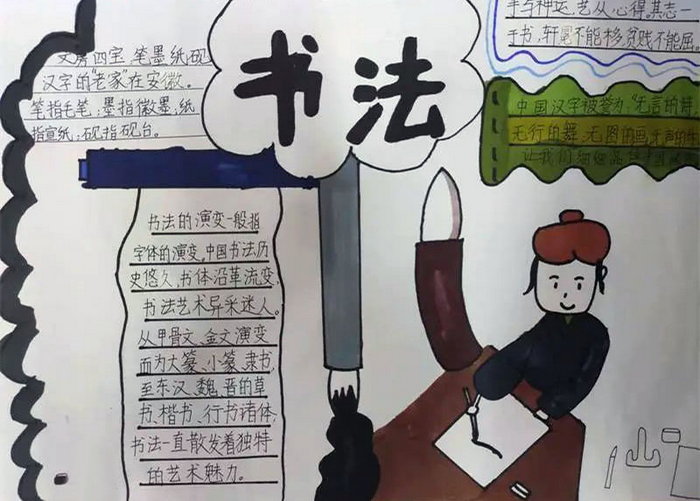 文房四宝,笔墨纸砚
汉字的“老家”在安徽。
笔指毛笔,墨指徽墨,纸
指宣纸,砚指砚台。
书法
手与神运,艺从心得。其志一
于书,轩冕不能移,贫贱不能屈
中国汉字被誉为“无言的诗
无行的舞,无图的画,无声的
让我们细细品
书法的演变一般指
字体的演变,中国书法历
史悠久,书体沿革流变,
书法艺术异采迷人。
从甲骨文、金文演变
而为大篆、小篆、隶书,
至东汉、魏、晋的草
书、楷书、行书诸体,
书法一直散发着独特
的艺术魅力。